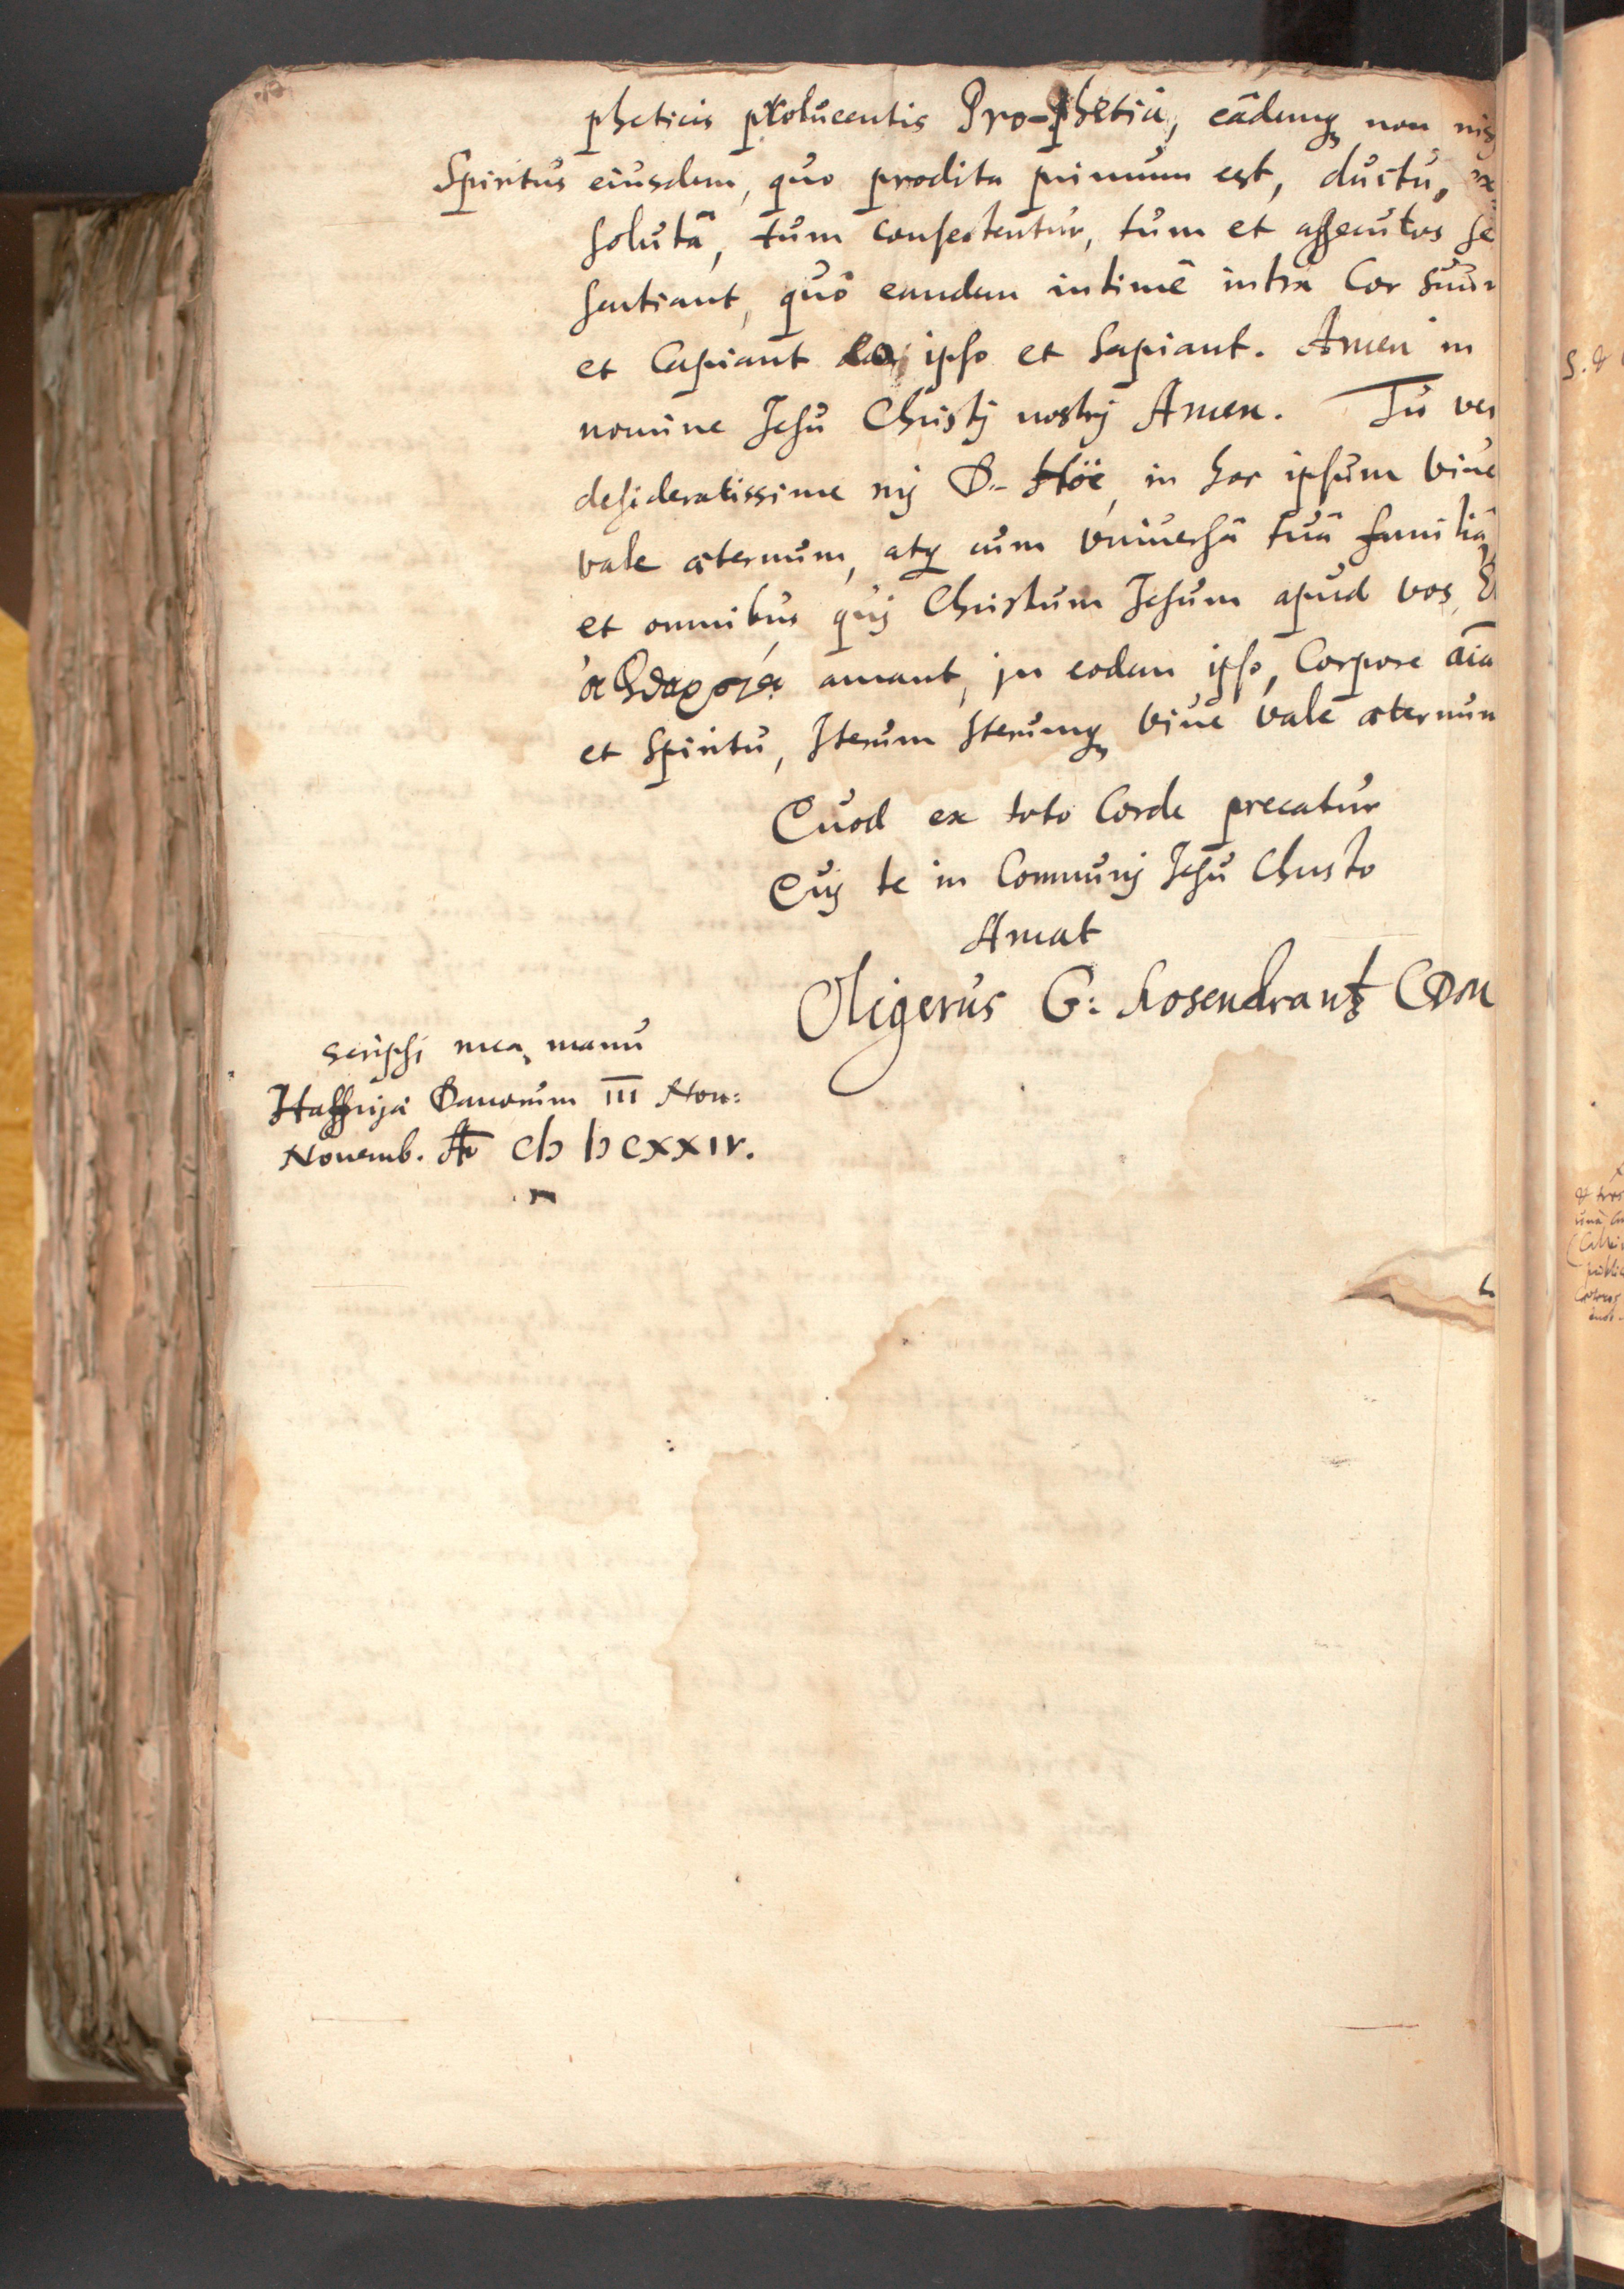 pheticis prolucentis Pro-phetiâ, eâdemq̨ non nisj
Spiritus eiusdem, quo prodita primum est, ductu, ex
solutâ, tum consectentur, tum et assecutos se
sentiant, quô eandem intimè intra Cor suum
et Capiant ipso et sapiant. Amen in
nomine Jesu Christj nostrj Amen. Tu ver
desideratissime mj D. Höe, in hoc ipsum vive
vale æternum, atq̨ cum vniuersâ tuâ familiâ,
et omnibus quj Christum Jesum apud vos,
ἀφθαρσίᾳ amant, jn eodem ipso, Corpore aīa
et Spiritu, Iterum Iterumq̨ vive vale æternum
Quod ex toto Corde precatur
Quj te in Communj Jesu Christo
Amat
Oligerus G: Rosencrantz
scripsj mea manu
Haffnijæ Danorum III Non:
Nouemb. Ao cIↄ Iↄ cxxiv.